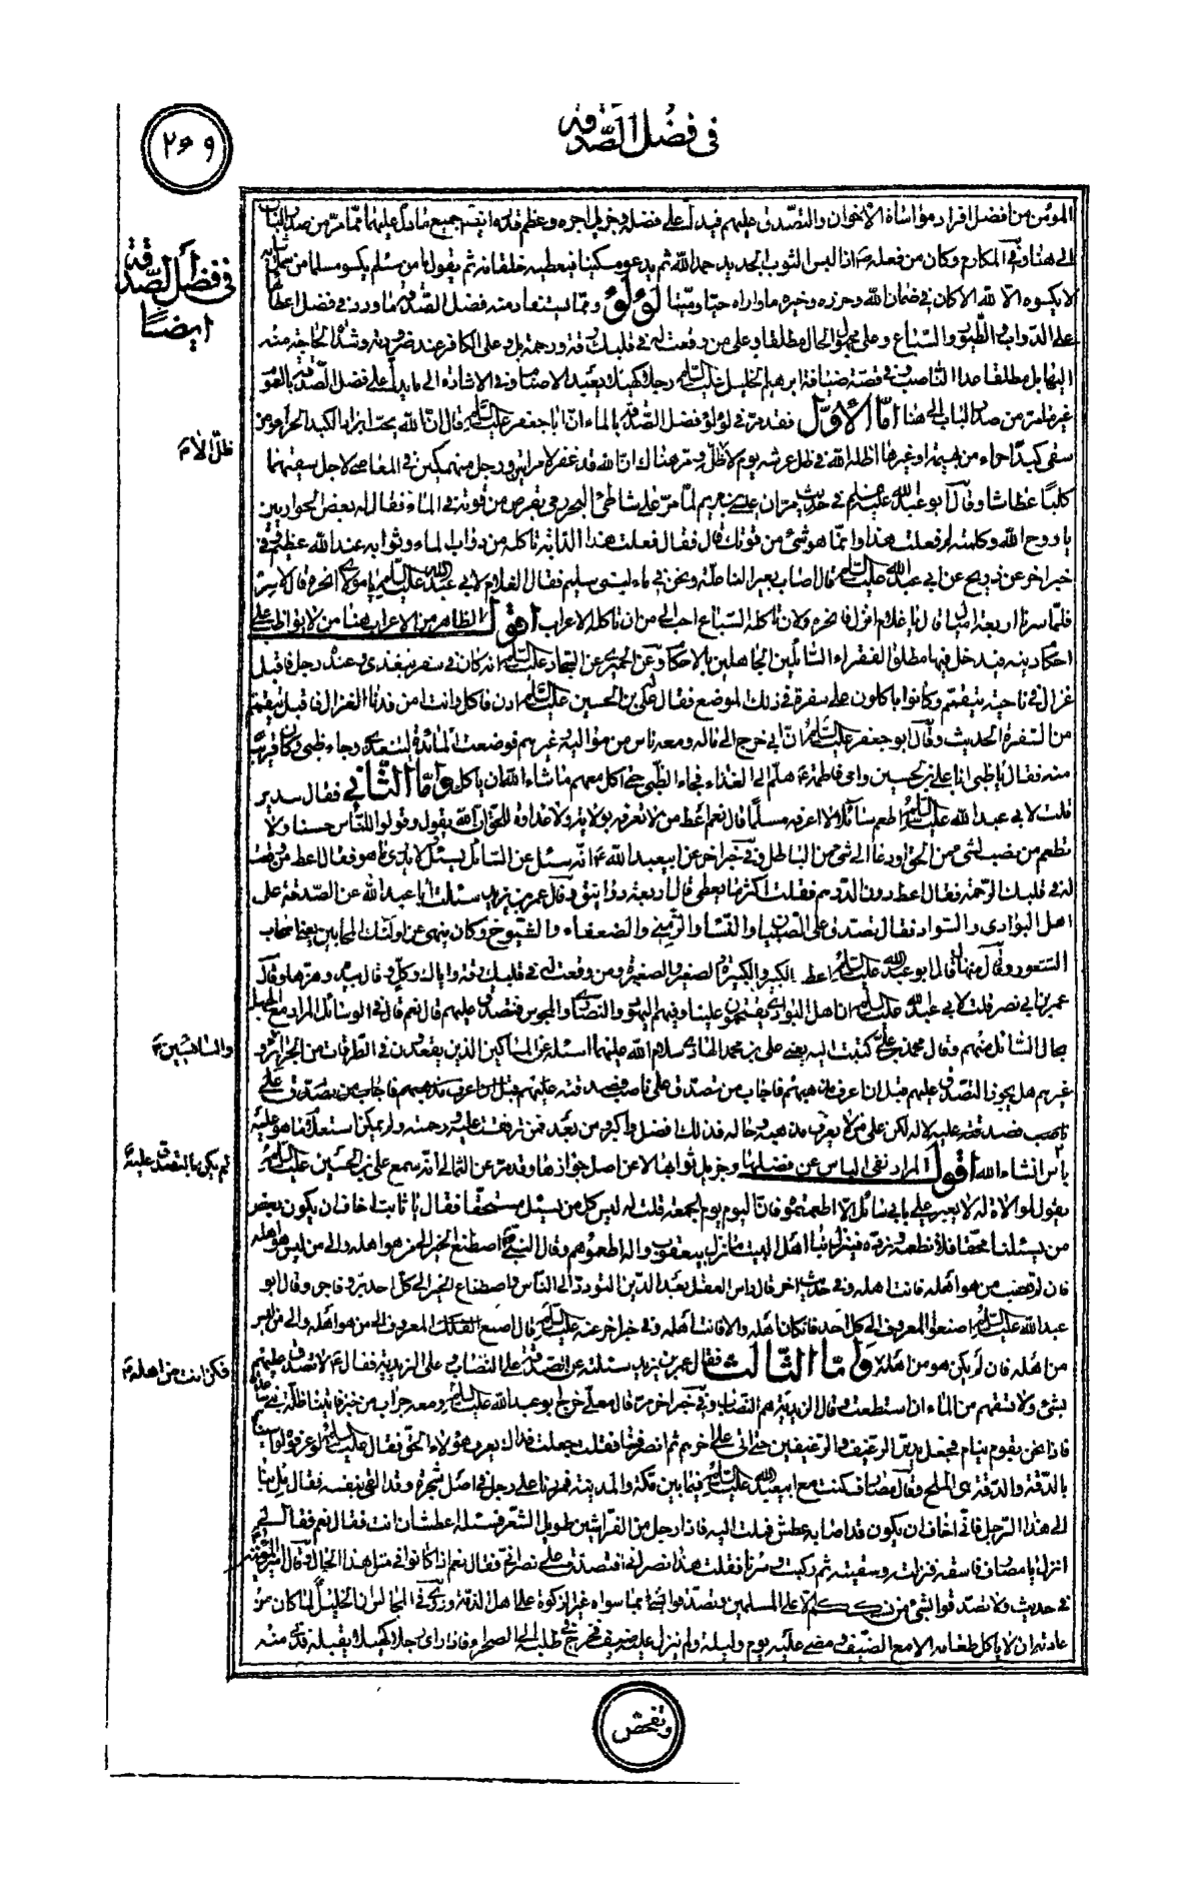 في فضل الصدقة
٢٦٩
في فضل الصدقة
ايضا
المؤمن من افضل افراد مواساة الاخوان والتصدق عليهم فيدل على فضله وجزيل اجره وعظم قدره ايضا جميع ما دل عليهما مما مر من صدر الباب
الى هنا وفي المكارم وكان من فعله ص اذا لبس الثوب الجديد حمد الله ثم يدعو مسكينا فيعطيه خلقانه ثم يقول ما من مسلم يكسو مسلما من شمل ثيابه
لا يكسوه الا لله الا كان في ضمان الله وحرزه وخيره ما واراه حيا وميتا لؤلؤ ومما يستفاد منه فضل الصدقة ما ورد في فضل اعطائها
على الدواب والطيور والسباع وعلى مجهول الحال مطلقا وعلى من وقعت له في قلبك رقة ورحمة بل وعلى الكافر عند ضرورته وشدة الحاجة منه
اليها بل مطلقا عدا الناصب في قصة ضيافة ابرهيم الخليل عليه السلم رجلا كهيلا يعبد الاصنام وفي الاشارة الى ما يدل على فضل الصدقة بالعموم
غير ما مر من صدر الباب الى هنا اما الاول فقد مر في لؤلؤ فضل الصدقة بالماء ان ابا جعفر عليه السلم قال ان الله يحب ابراد الكبد الحراء ومن
سقى كبدا حراء من بهيمة او غيرها اظله الله في ظل عرشه يوم لا ظل الا ظله ومر هناك ان الله قد غفر لامراتين ورجل منهمكين في المعاصي لاجل سقيهما
كلبا عطاشا وقال ابو عبد الله عليه السلم في حديث مر ان عيسى بن مريم لما مر على شاطئ البحر رمى بقرص من قوته في الماء فقال له بعض الحواريين
يا روح الله وكلمته لم فعلت هذا وانما هو شيء من قوتك قال فقال فعلت هذا لدابة تاكله من دواب الماء وثوابه عند الله عظيم وفي
خبر اخر عن ذريح عن ابي عبد الله عليه السلم قال اصاب بعير لنا علة ونحن في ماء لبني سليم فقال الغلام لابي عبد الله عليه السلم يا مولاي انحره قال لا سر
فلما سرنا اربعة اميال قال يا غلام انزل فانحره ولان تاكله السباع احب الي من ان تاكله الاعراب اقول الظاهر من الاعراب هنا من لا يواظب على
احكام دينه فيدخل فيها مطلق الفقراء السائلين الجاهلين بالاحكام وعن الحميري عن السجاد عليه السلم انه كان في سفر يتغدى وعنده رجل فاقبل
غزال في ناحية يتقمم وكانوا ياكلون على سفرة في ذلك الموضع فقال علي بن الحسين عليه السلم ادن فكل وانت امن فدنا الغزال فاقبل يتقمم
من السفرة الحديث وقال ابو جعفر عليه السلم ان ابي خرج الى ماله ومعه ناس من مواليه وغيرهم فوضعت المائدة ليتغدى وجاء ظبي وكان قريبا
منه فقال يا ظبي انا علي بن الحسين وامي فاطمة ع هلم الى الغذاء فجاء الظبي حتى اكل معهم ما شاء الله ان ياكل واما الثاني فقال سدير
قلت لابي عبد الله عليه السلم اطعم سائلا لا اعرفه مسلما قال نعم اعط من لا تعرفه بولاية ولا عداوة للحق ان الله يقول وقولوا للناس حسنا ولا
تطعم من نصب لشيء من الحق او دعا الى شيء من الباطل وفي خبر اخر عن ابي عبد الله ع انه سئل عن السائل يسئل لا يدرى ما هو فقال اعط من وقعت
له في قلبك الرحمة فقال اعط دون الدرهم فقلت اكثر ما يعطى قال اربعة دوانيق وقال عمر بن يزيد سئلت ابا عبد الله عن الصدقة على
اهل البوادي والسواد فقال تصدق على الصبيان والنساء والزمنى والضعفاء والشيوخ وكان ينهى عن اولئك المجانين يعني اصحاب
الشعور وقال منهال قال ابو عبد الله عليه السلم اعط الكبير والكبيرة والصغير والصغيرة ومن وقعت له في قلبك رقة واياك وكل وقال بيده وهزها وقال
عمر بن ابي نصر قلت لابي عبد الله عليه السلم ان اهل البوادي يقتحمون علينا وفيهم اليهود والنصارى والمجوس فنتصدق عليهم قال نعم قال في الوسائل المراد مع الجهل
بحال السائل منهم وقال محمد بن علي كتبت اليه يعني علي بن محمد الهادي سلام الله عليهما اسئله عن المساكين الذين يقعدون في الطرقات من الجزايرة و
غيرهم هل يجوز التصدق عليهم قبل ان اعرف مذهبهم فاجاب من تصدق على ناصب فصدقته عليه لا له لكن على من لا يعرف مذهبه وحاله فذلك افضل واكبر ومن بعد فمن ترققت عليه ورحمته ولم يمكن استعلام ما هو عليه
باس انشاء الله اقول المراد نفي الباس عن فضلها وجزيل ثوابها لا عن اصل جوازها وقد مر عن الثمالي انه سمع علي بن الحسين عليه السلم
يقول لمولاة له لا يعبر على بابي سائل الا اطعمتموه فان اليوم يوم الجمعة قلت له ليس كل من يسئل مستحقا فقال يا ثابت اخاف ان يكون بعض
من يسئلنا محقا فلا نطعمه ونرده فينزل بنا اهل البيت ما نزل بيعقوب واله اطعموهم وقال النبي ص اصطنع الخير الى من هو اهله والى من ليس هو اهله
فان لم تصب من هو اهله فانت اهله وفي حديث اخر قال راس العقل بعد الدين التودد الى الناس واصطناع الخير الى كل احد بر وفاجر وقال ابو
عبد الله عليه السلم اصنعوا المعروف الى كل احد فان كان اهله والا فانت اهله وفي خبر اخر عنه عليه السلم قال اصنع المعروف الى من هو اهله والى من ليس
من اهله فان لم يكن هو من اهله واما الثالث فقال عمر بن يزيد سئلته عن الصدقة على النصاب وعلى الزيدية فقال ع لا تصدق عليهم
بشيء ولا تسقهم من الماء ان استطعت وقال الزيدية هم النصاب وفي خبر اخر مر قال معلى خرج ابو عبد الله عليه السلم ومعه جراب من خبز فاتينا ظلة بني ساعدة
فاذا نحن بقوم نيام فجعل يدس الرغيف والرغيفين حتى اتى على اخرهم ثم انصرفنا فقلت جعلت فداك يعرف هؤلاء الحق فقال عليه السلم لو عرفوا لواسيناهم
بالدقة والدقة هي الملح وقال مصادف كنت مع ابي عبد الله عليه السلم فيما بين مكة والمدينة فمررنا على رجل في اصل شجرة وقد القى بنفسه فقال مل بنا
الى هذا الرجل فاني اخاف ان يكون قد اصابه عطش فملت اليه فاذا رجل من الفراشين طويل الشعر فسئله اعطشان انت فقال نعم فقال لي
انزل يا مصادف فاسقه فنزلت وسقيته ثم ركبت وسرنا فقلت هذا نصراني افتتصدق على نصراني فقال نعم اذا كانوا في مثل هذا الحال وقال امير المؤمنين
في حديث ولا تصدقوا بشيء من نسككم الا على المسلمين وتصدقوا بما سواه غير الزكوة على اهل الذمة وروي في المجالس ان الخليل لما كان من
عادته ان لا ياكل طعامه الا مع الضيف ومضى عليه يوم وليلة ولم ينزل عليه ضيف فخرج في طلبه الى الصحراء فاذا راى رجلا كهيلا يقبله قدم منه
ظل الا م
والسائبين م
ثم يكن ما التصدق عليه م
فكن انت من اهله م
وتفحص